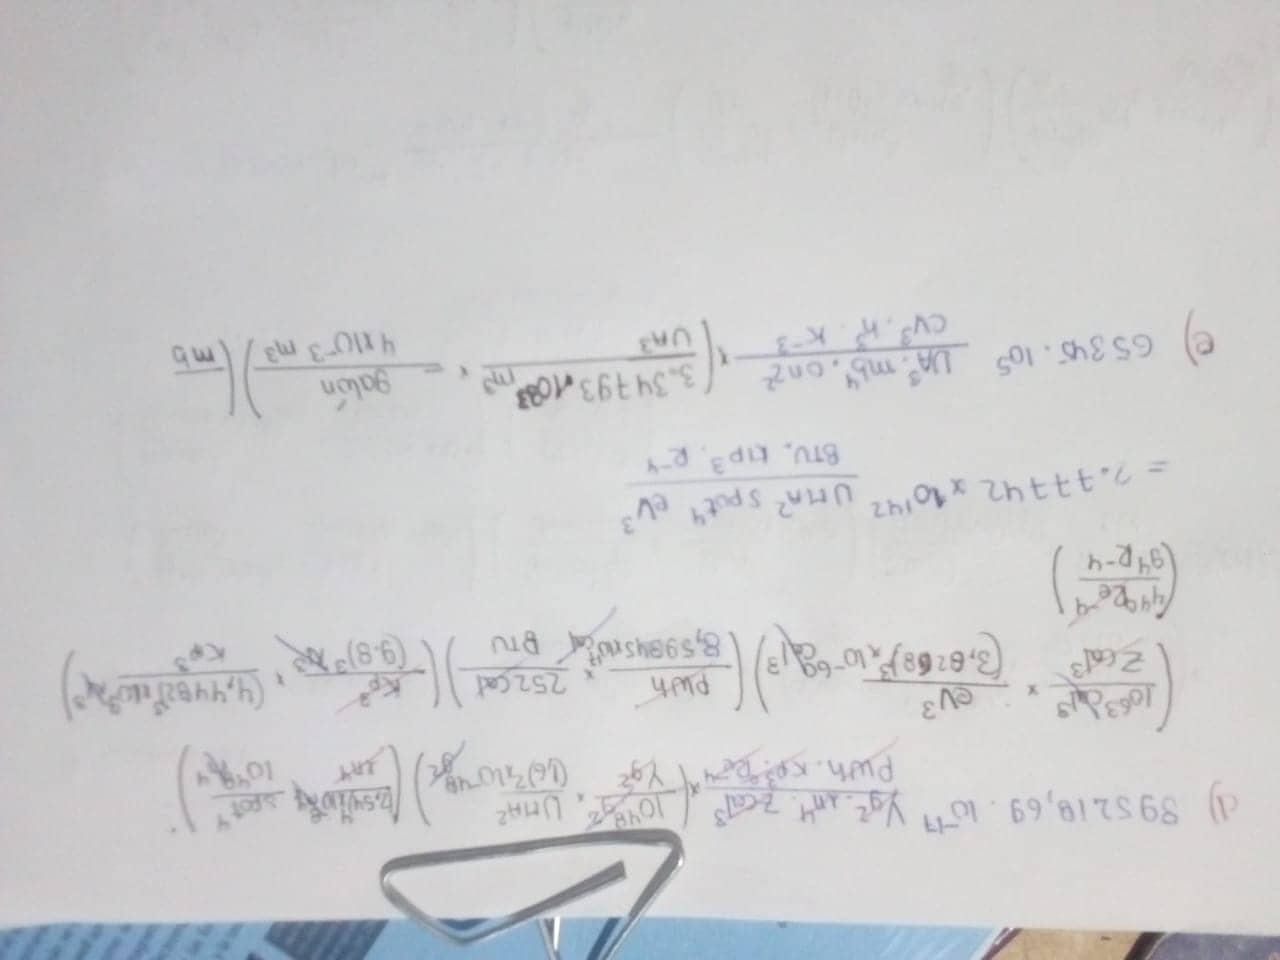 d) 895218,69 · 10⁻¹⁷ Yg² · in⁴ · Zcal³ / PWh · Kp³ · Re⁻⁴ × (10⁴⁸ g² / Yg² × UMA² / (1,6)² × 10⁻⁴⁸ g²) (2,54⁴ × 10⁻⁸ / in⁴ spot⁴ / 10⁴⁹ )
(10⁶³ cal³ / Zcal³ × eV³ / (3,8268)³ × 10⁻⁶⁹ cal³) (PWh / 8,59845 × 10¹⁷ cal × 252 cal / BTU) (Kp³ / (9.8)³ N³ × (4,4482)³ × 10⁹ N³ / Kip³)
(4⁴ Re⁻⁴ / 9⁴ R⁻⁴)
= 2.77742 × 10¹⁴² UMA² spot⁴ eV³ / BTU. kip³. R⁻⁴
e) 65345 · 10⁵ UA³ · mb⁴ · onz² / CV³ · h³ · K⁻³ × (3.34793 · 10³³ m³ / UA³ × = galón / 4x10⁻³ m³) (mb